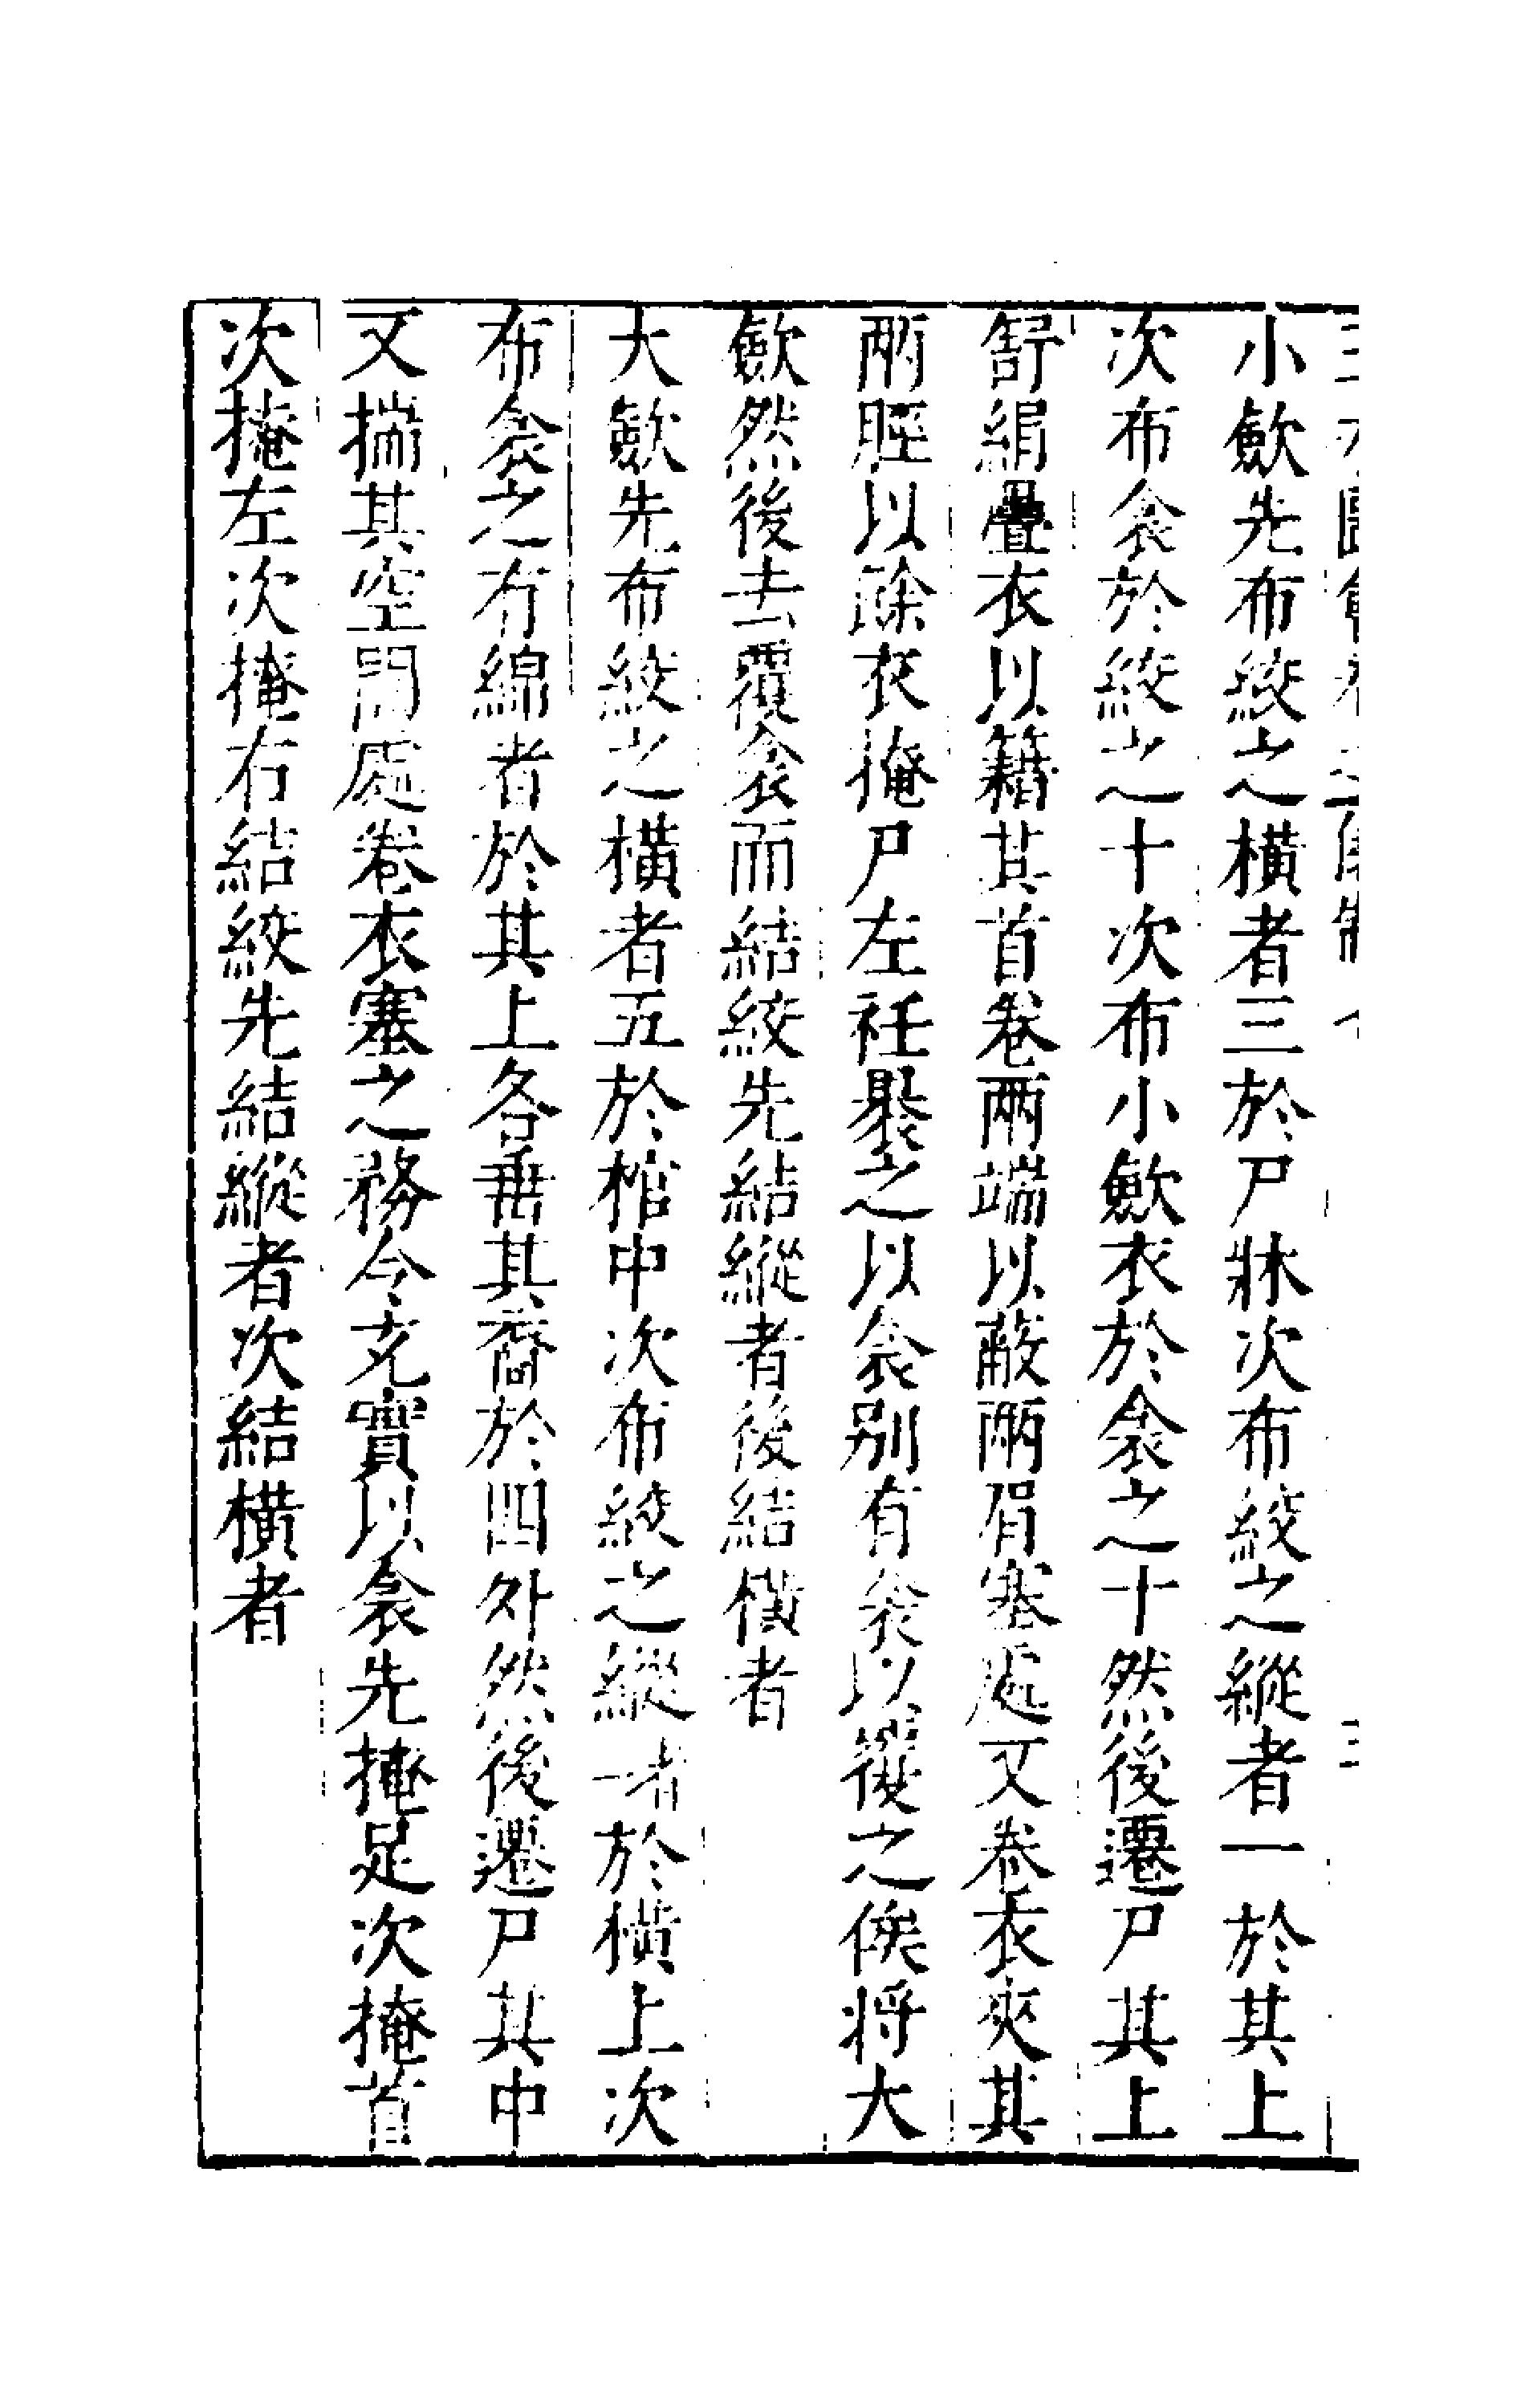 小斂先布絞之橫者三於尸牀次布絞之縱者一於其上
次布衾於絞之十次布小斂衣於衾之十然後遷尸其上
舒絹疊衣以籍其首卷兩端以蔽兩肩塞處又卷衣夾其
兩脛以除衣掩尸左衽褁之以衾別有衾以覆之俟将大
斂然後去覆衾而結絞先結縱者後結橫者
大斂先布絞之橫者五於棺中次布絞之縱者於橫上次
布衾之有綿者於其上各垂其裔於四外然後遷尸其中
又揣其空間處卷衣塞之務令充實以衾先掩足次掩首
次掩左次掩右結絞先結縱者次結橫者